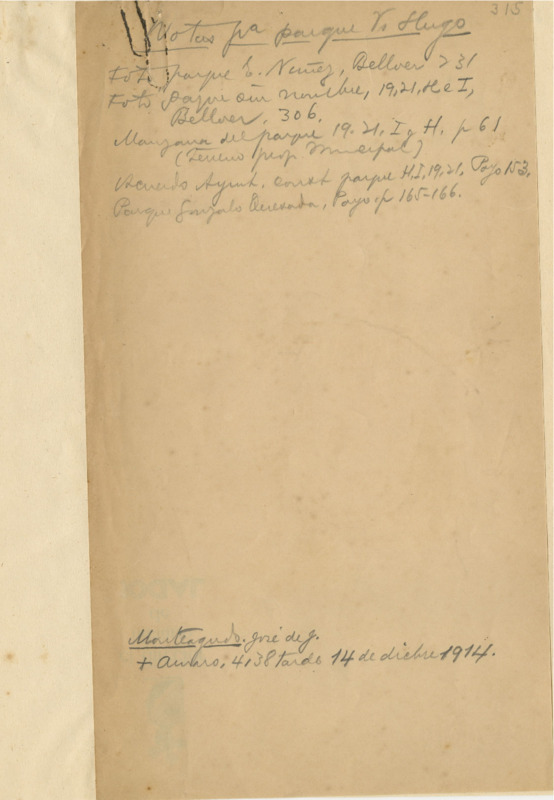 315
Notas pa parque V. Hugo
Foto parque E. Nuñez, Bellver 231
Foto parque sin nombre, 19, 21, H e I,
Bellver, 306.
Manzana del parque 19. 21, I y H. p 61
(Terreno prop. Municipal)
Acuerdo Aynt. const parque H, I, 19, 21, Payo 153,
Parque Gonzalo Quesada, Payo p 165-166.
Monteagudo. José de J.
+ Amaro, 4,38 tarde 14 de dicbre 1914.